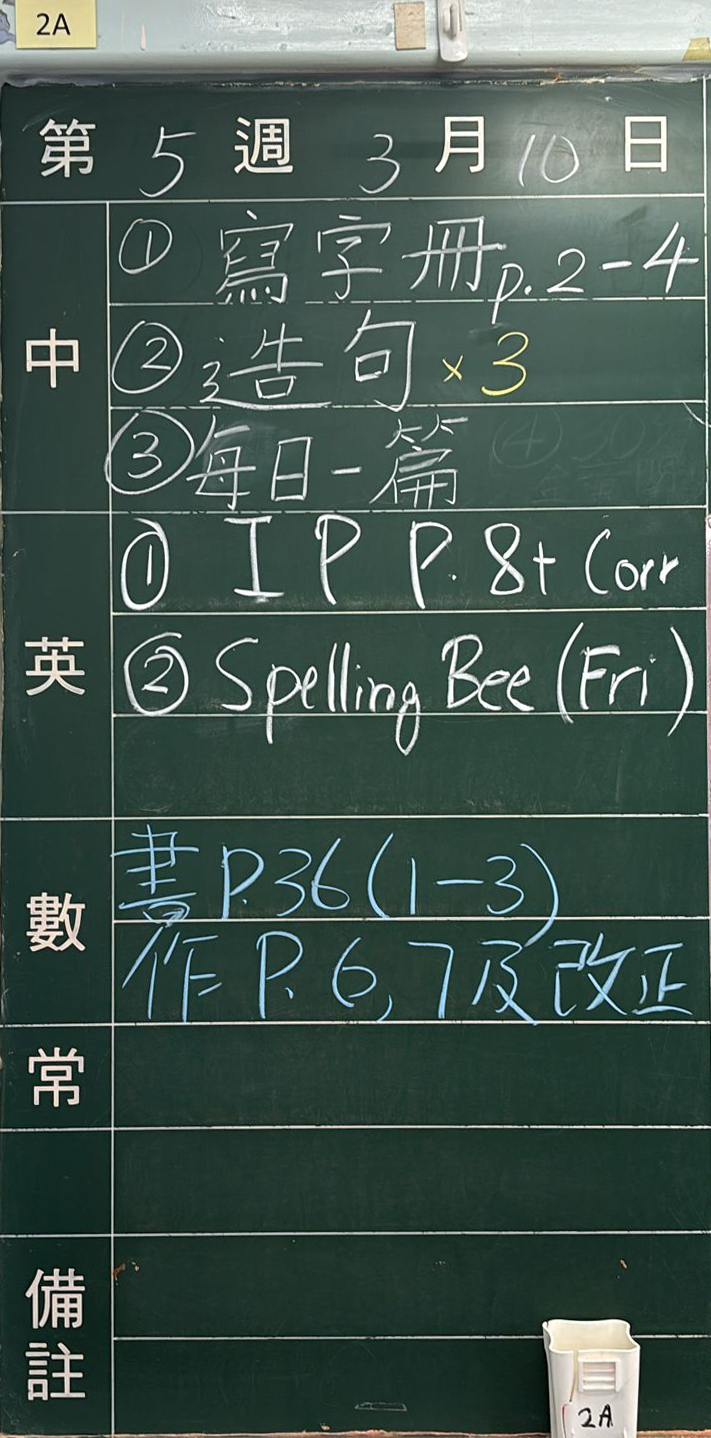 2A
第 5 週 3 月 10 日
中
① 寫字冊 p.2-4
② 造句 × 3
③ 每日一篇
英
① IP P.8+ Corr
② Spelling Bee (Fri)
數
書 P.36 (1-3)
作 P.6,7及改正
常
備註
2A